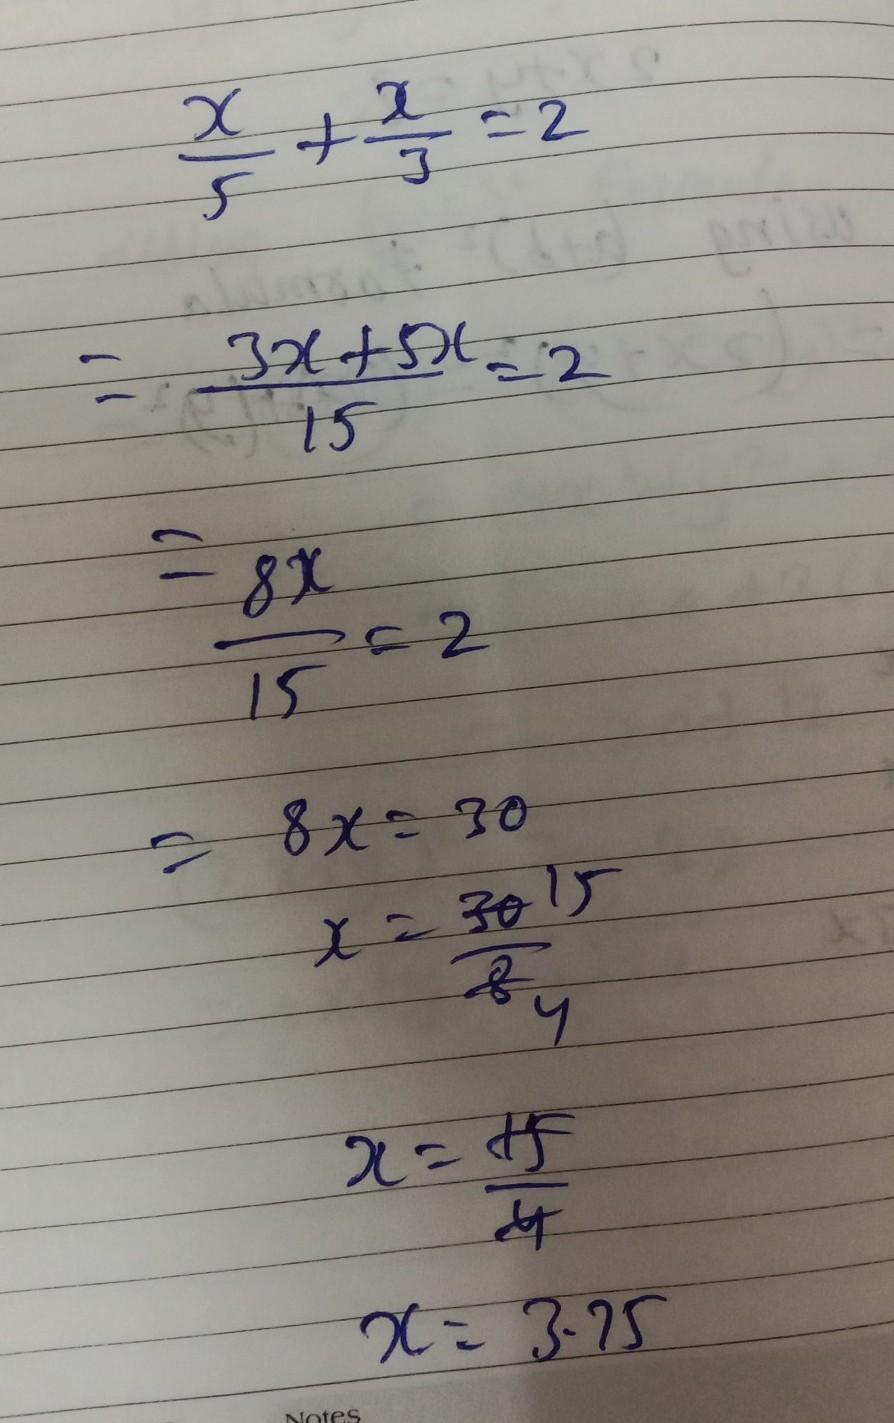 x/5 + x/3 = 2
= 3x+5x/15 = 2
= 8x/15 = 2
= 8x = 30
x = 30/8 15/4
x = 15/4
x = 3.75
Notes